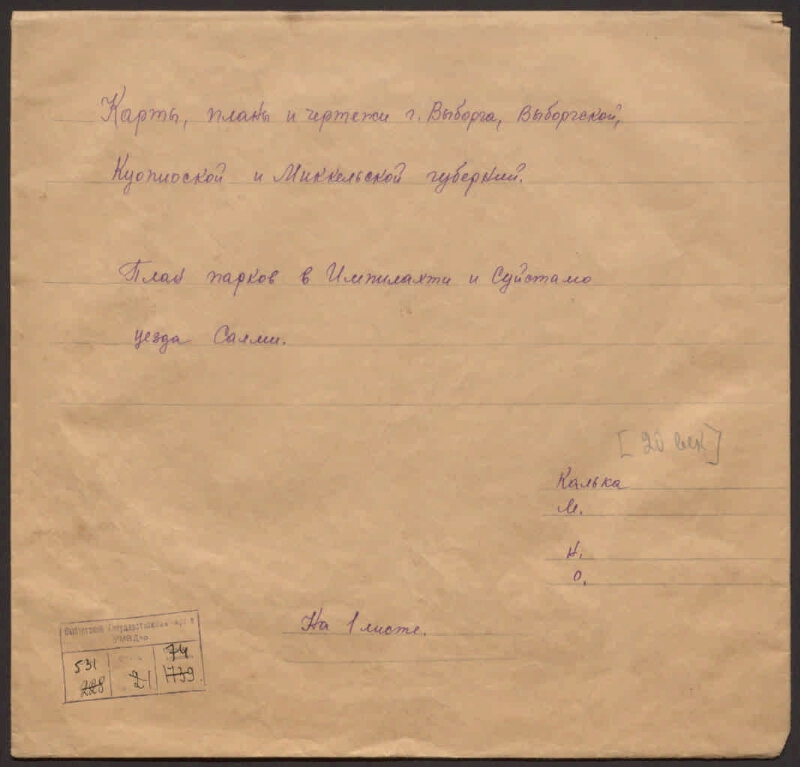 Карты, планы и чертежи г. Выборга, Выборгской,
Куопиоской и Миккельской губерний.
План парков в Импилахти и Суйстамо
уезда Саями.
[20 век]
Калька
М.
Н.
О.
На 1 листе.
Государственный
УМВД
531 74
228 21 1739